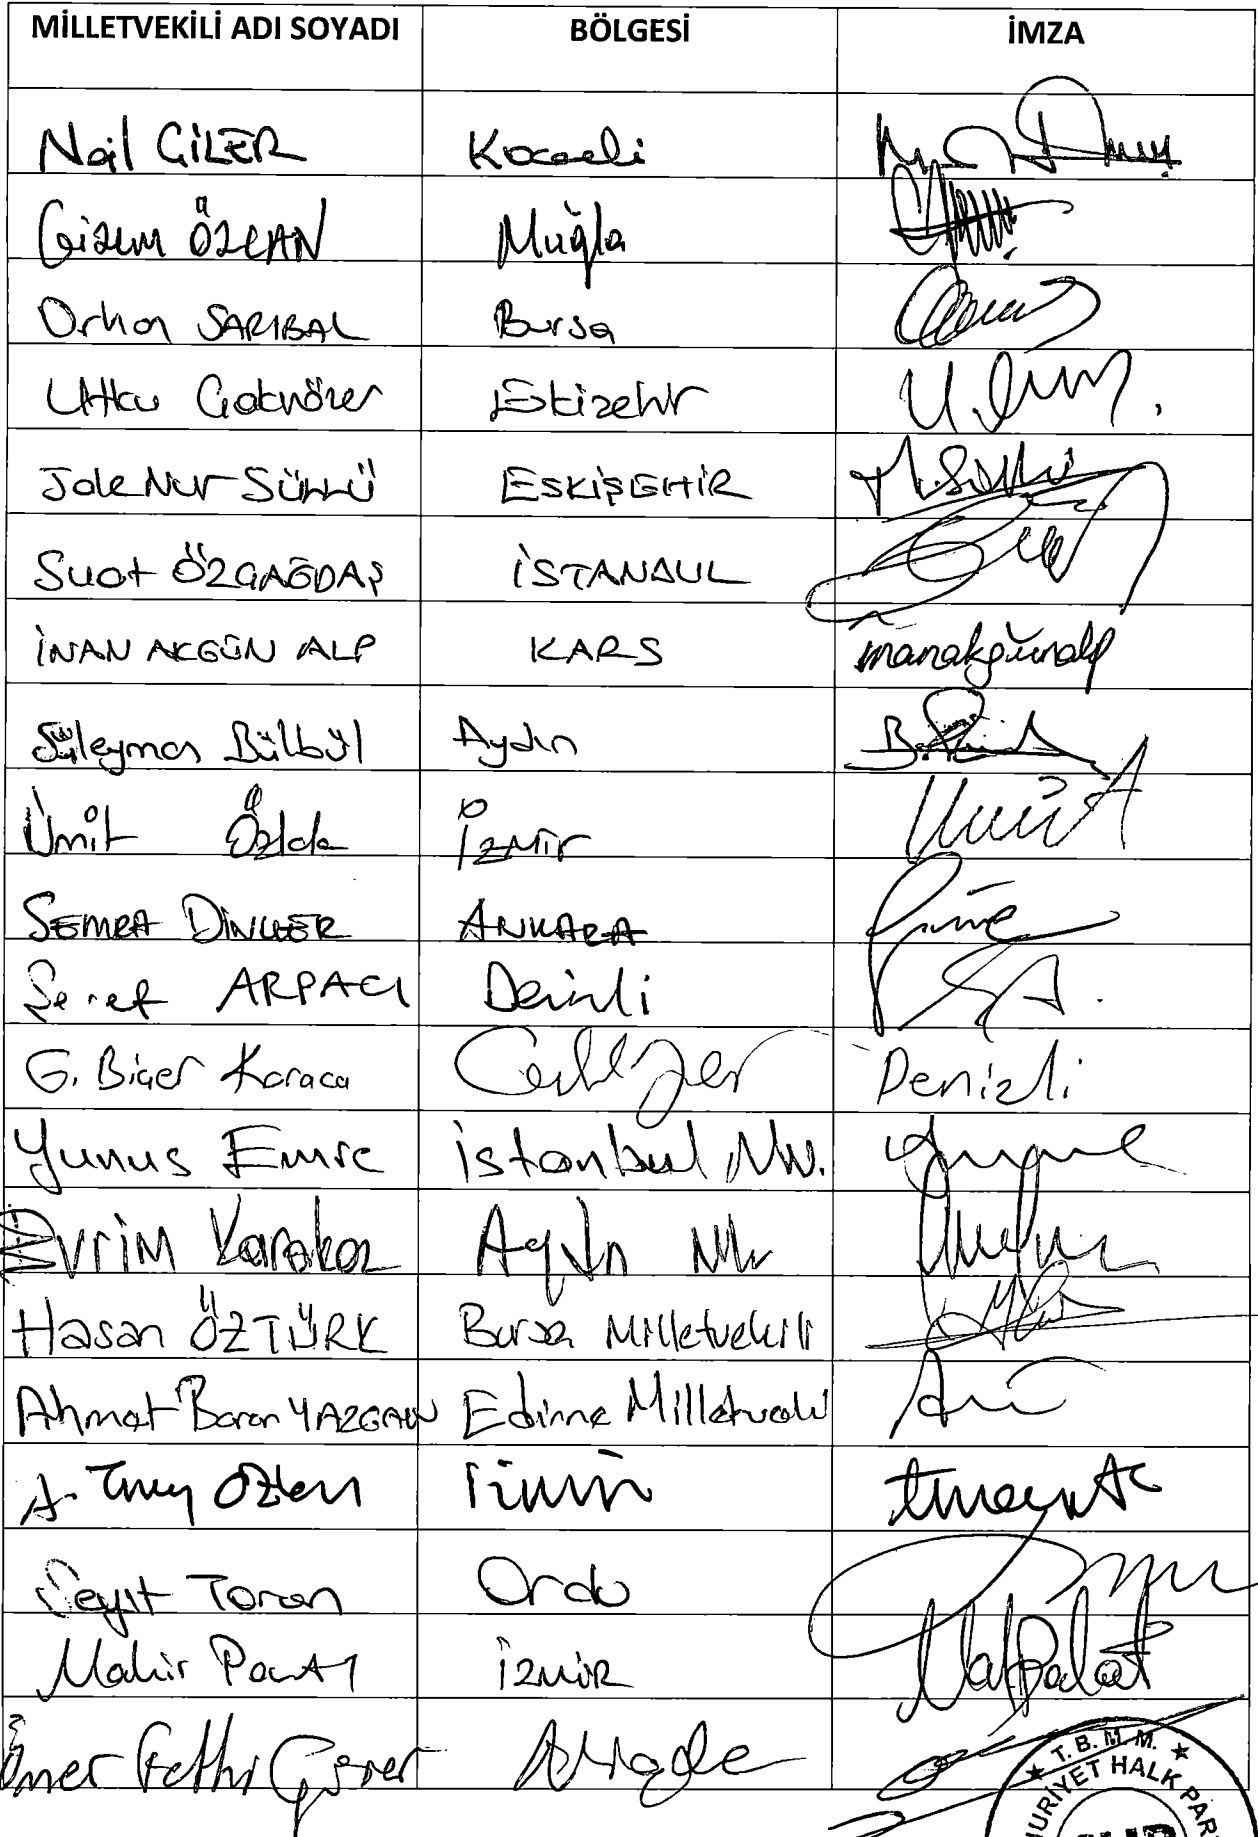 MİLLETVEKİLİ ADI SOYADI BÖLGESİ İMZA
Nail ÇİLER Kocaeli
Gizem ÖZCAN Muğla
Orhan SARIBAL Bursa
Utku Çakırözer Eskişehir
Jale Nur SÜLLÜ ESKİŞEHİR
Suat ÖZÇAĞDAŞ İSTANBUL
İNAN AKGÜN ALP KARS inanakgünalp
Süleyman Bülbül Aydın
Ümit Özlale İzmir
SEMRA DİNÇER ANKARA
Şeref ARPACI Denizli
G. Biçer Karaca Denizli
Yunus Emre İstanbul Mv.
Evrim Karakoz Aydın Mv
Hasan ÖZTÜRK Bursa Milletvekili
Ahmet Baran YAZGAN Edirne Milletvekili
A. Tuncay Özkan İzmir
Seyit Torun Ordu
Mahir Polat İZMİR
Ömer Fethi Gürer Niğde
★ T.B.M.M. ★